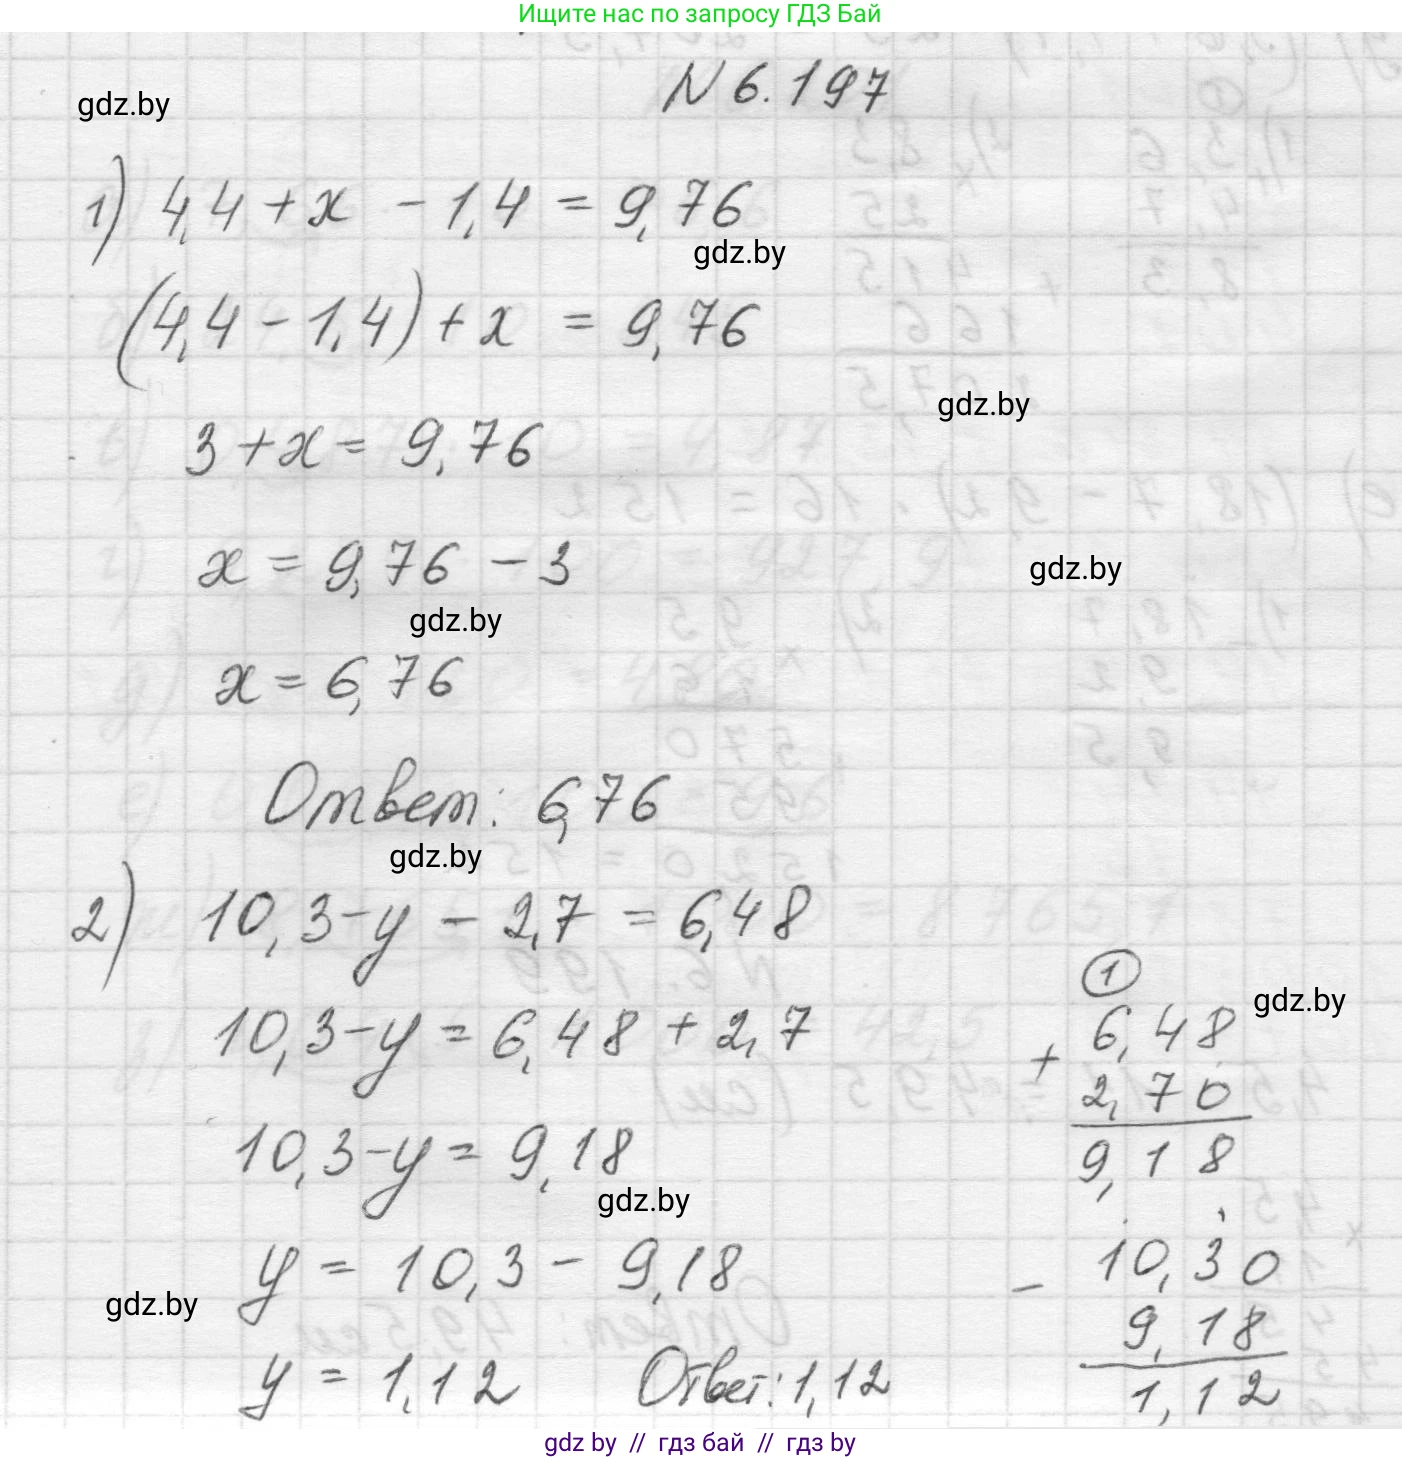 Ищите нас по запросу ГДЗ Бай
N 6.197
gdz.by
1) 4,4 + x - 1,4 = 9,76
gdz.by
(4,4 - 1,4) + x = 9,76
gdz.by
3 + x = 9,76
x = 9,76 - 3
gdz.by
gdz.by
x = 6,76
Ответ: 6,76
gdz.by
2) 10,3 - y - 2,7 = 6,48
10,3 - y = 6,48 + 2,7
10,3 - y = 9,18
gdz.by
y = 10,3 - 9,18
gdz.by
y = 1,12 Ответ: 1,12
1
gdz.by
6,48
+
2,70
9,18
10,30
-
9,18
1,12
gdz by // гдз бай // гдз by